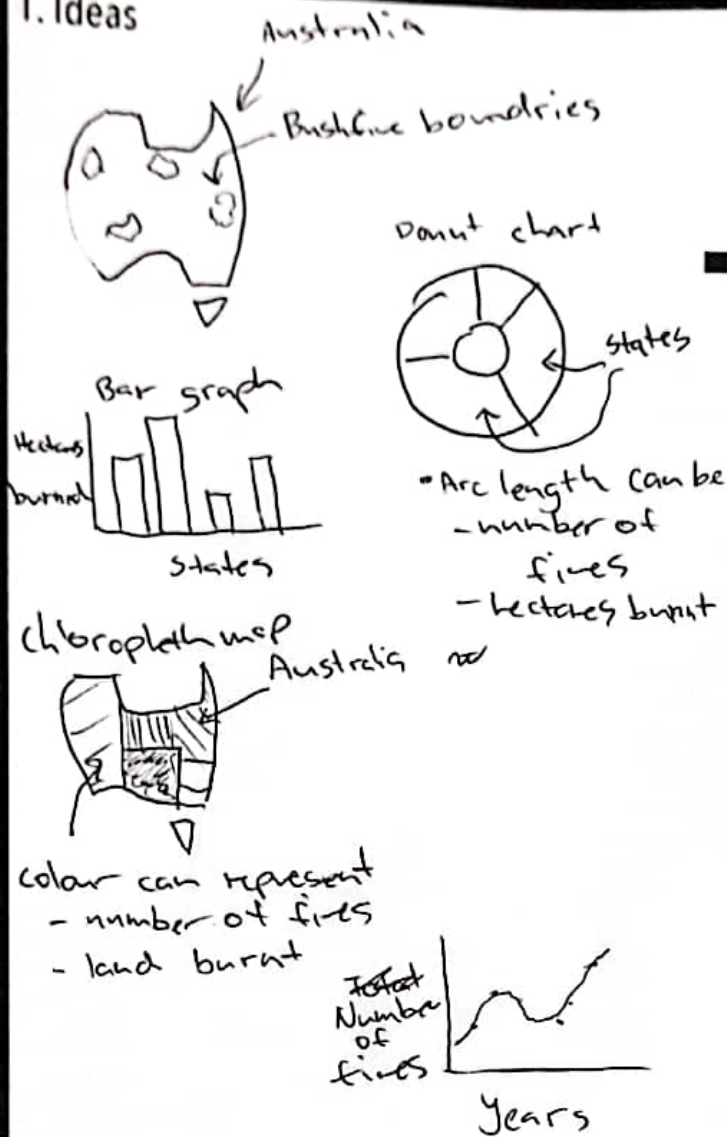 1. Ideas
Australia
Bushfire boundries
Donut chart
States
Bar graph
Hectares
burned
States
• Arc length can be
- number of
fires
- hectares burnt
chloropleth map
Australia
colour can represent
- number of fires
- land burnt
Number
of
fires
Years